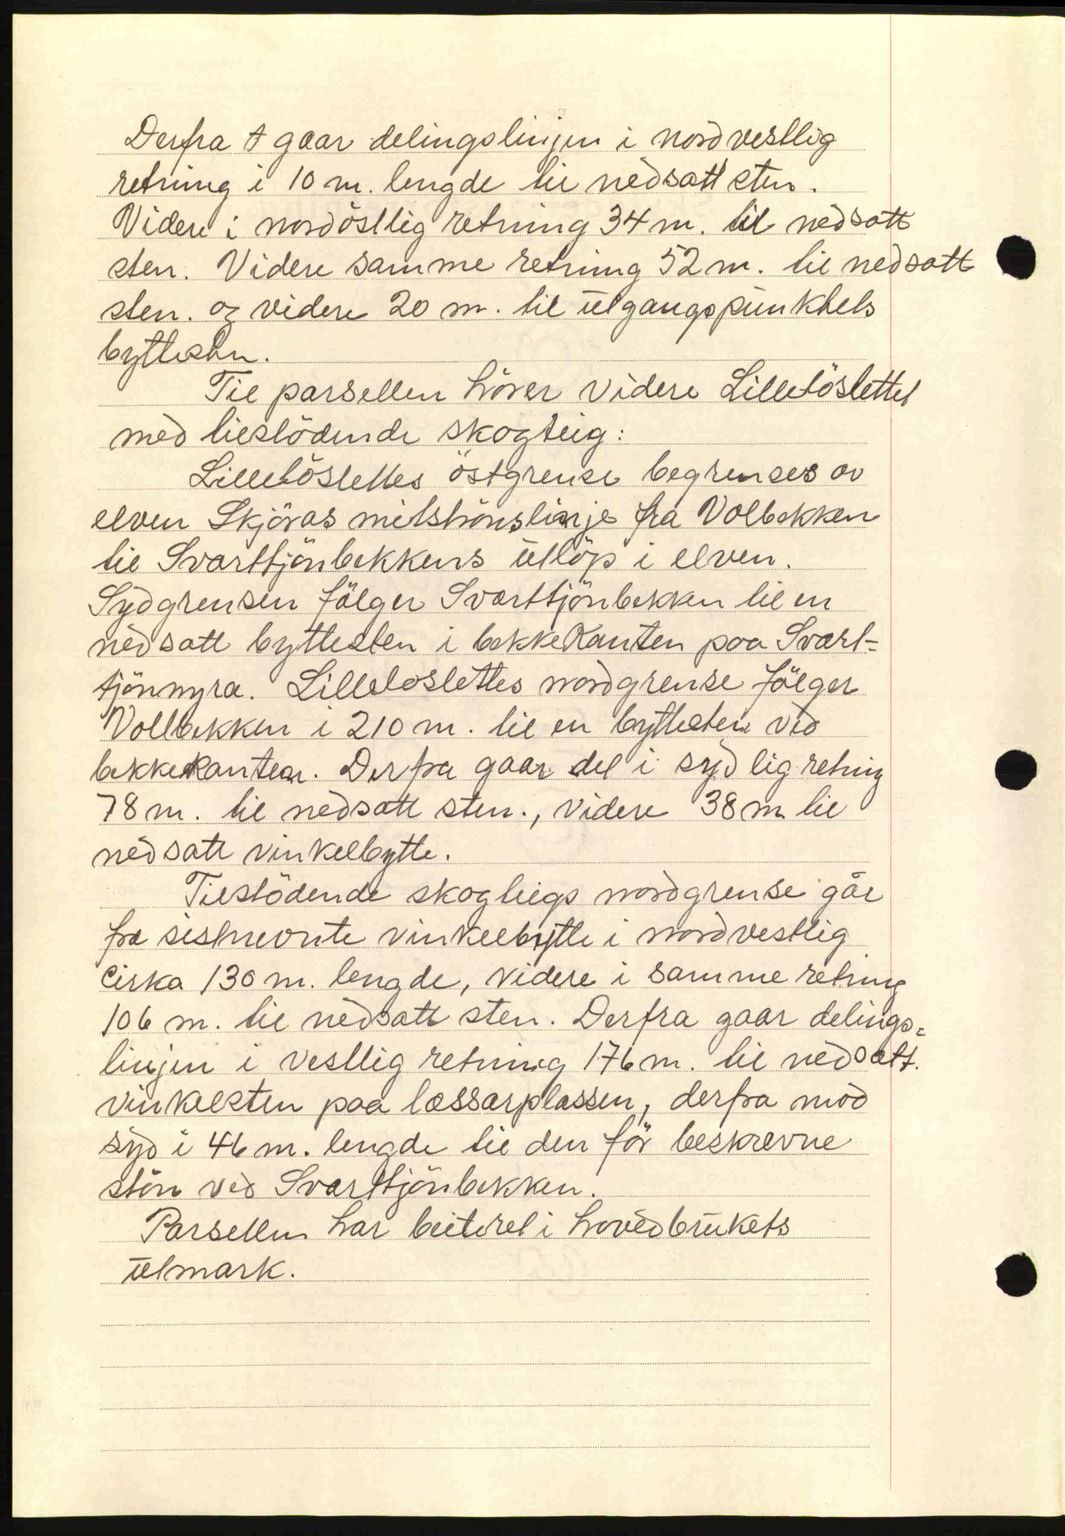 Derfra gaar delingslinjen i nordvestlig
retning i 10 m. lengde til nedsatt sten.
Videre i nordöstlig retning 34 m. til nedsatt
sten. Videre samme retning 52 m. til nedsatt
sten. og videre 20 m. til utgangspunktets
byttesten.
Til parsellen hörer videre Lillelöslettet
med tilstödende skogteig:
Lillelöslettes östgrense begrenses av
elven Skjöras mitströmslinje fra Volbekken
til Svarttjönbekkens utlöp i elven.
Sydgrensen fölger Svarttjönbekken til en
nedsatt byttesten i bekkekanten paa Svart-
tjönmyra. Lilleloslettes nordgrense fölger
Volbekken i 210 m. til en byttesten ved
bekkekanten. Derfra gaar det i sydlig retning
78 m. til nedsatt sten., videre 38 m til
nedsatt vinkelbytte.
Tilstödende skogteigs nordgrense går
fra sistnevnte vinkelbytte i nordvestlig
cirka 130 m. lengde, videre i samme retning
106 m. til nedsatt sten. Derfra gaar delings=
linjen i vestlig retning 176 m. til nedsatt.
vinkelsten paa læssarplassen, derfra mod
syd i 46 m. lengde til den för beskrevne
stön ved Svarttjönbekken.
Parsellen har beiteret i hovedbrukets
utmark.